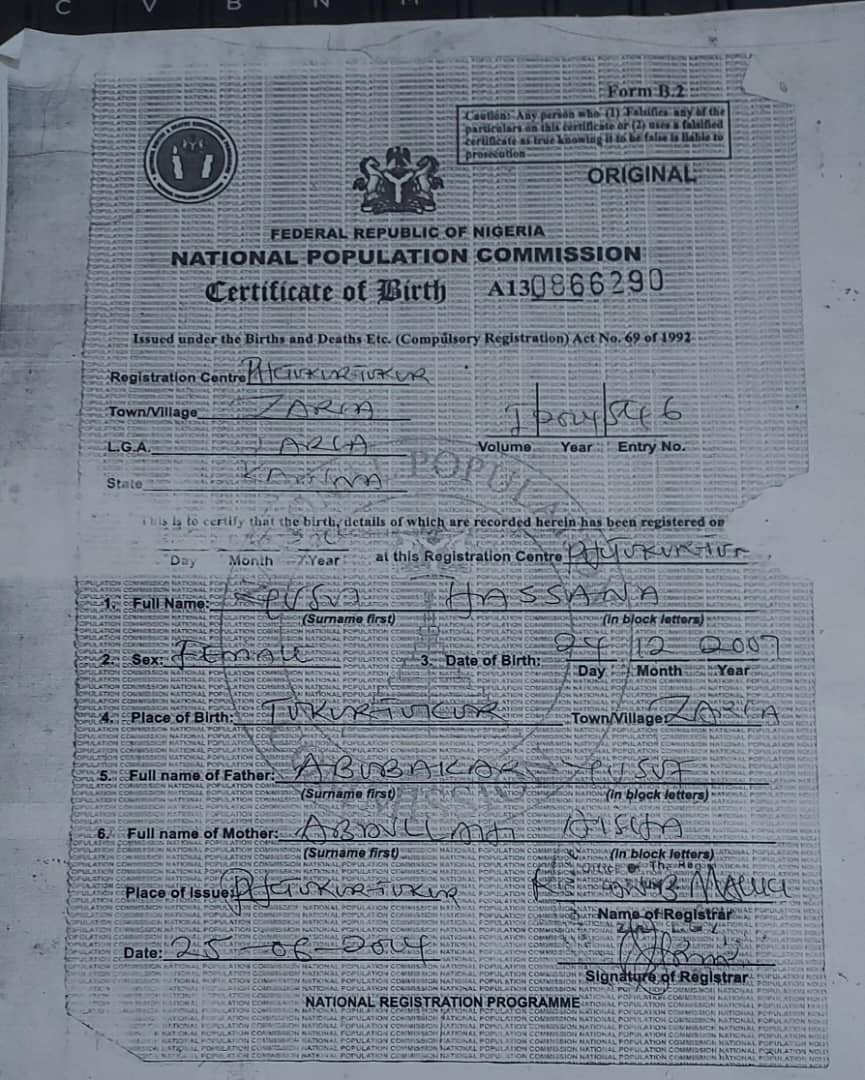 C V B N M
Form B.2
Caution: Any person who (1) Falsifies any of the
particulars on this certificate or (2) uses a falsified
certificate as true knowing it to be false is liable to
prosecution
ORIGINAL
FEDERAL REPUBLIC OF NIGERIA
NATIONAL POPULATION COMMISSION
Certificate of Birth A130866290
Issued under the Births and Deaths Etc. (Compulsory Registration) Act No. 69 of 1992
Registration Centre TUKUR-TUKUR
Town/Village ZARIA
L.G.A. ZARIA Volume Year Entry No.
State
This is to certify that the birth, details of which are recorded herein has been registered on
Day Month Year at this Registration Centre
1. Full Name: HASSANA
(Surname first) (in block letters)
2. Sex: FEMALE 3. Date of Birth: 24 12 2007
Day Month Year
4. Place of Birth: TUKUR TUKUR Town/Village: ZARIA
5. Full name of Father: ABUBAKAR YUSUF
(Surname first) (in block letters)
6. Full name of Mother: ABDULLAHI AISHA
(Surname first) (in block letters)
Place of Issue: TUKUR-TUKUR
Name of Registrar
Date: 25-06-2024
Signature of Registrar
NATIONAL REGISTRATION PROGRAMME